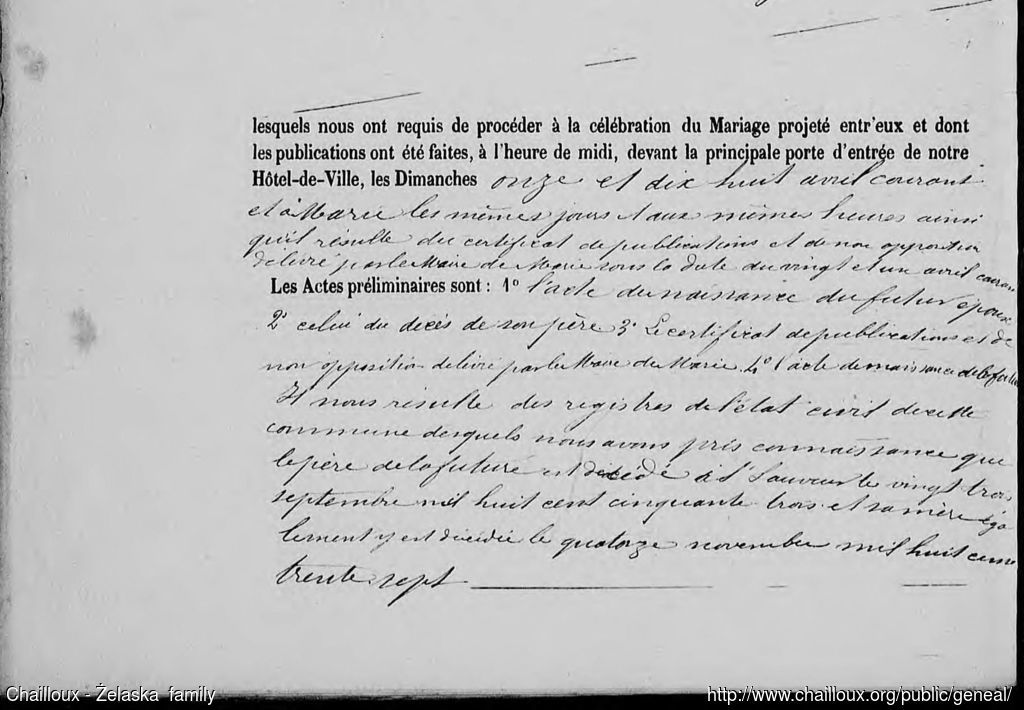 lesquels nous ont requis de procéder à la célébration du Mariage projeté entr'eux et dont
les publications ont été faites, à l'heure de midi, devant la principale porte d'entrée de notre
Hôtel-de-Ville, les Dimanches onze et dix huit avril courant
et à Marie les mêmes jours et aux mêmes heures ainsi
qu'il résulte du certificat de publications et de non opposition
délivré par le Maire de Marie sous la date du vingt et un avril couran
Les Actes préliminaires sont : 1° l'acte de naissance du futur époux
2° celui du decès de son père 3° Le certificat de publications et de
non opposition délivré par le Maire de Marie 4° l'acte de naissance de la future
Il nous résulte des registres de l'état civil de cette
commune desquels nous avons pris connaissance que
le père de la future est décédé à St Sauveur le vingt trois
septembre mil huit cent cinquante trois et sa mère éga
lement y est décédée le quatorze novembre mil huit cent
trente sept
Chailloux - Żelaska family
http://www.chailloux.org/public/geneal/